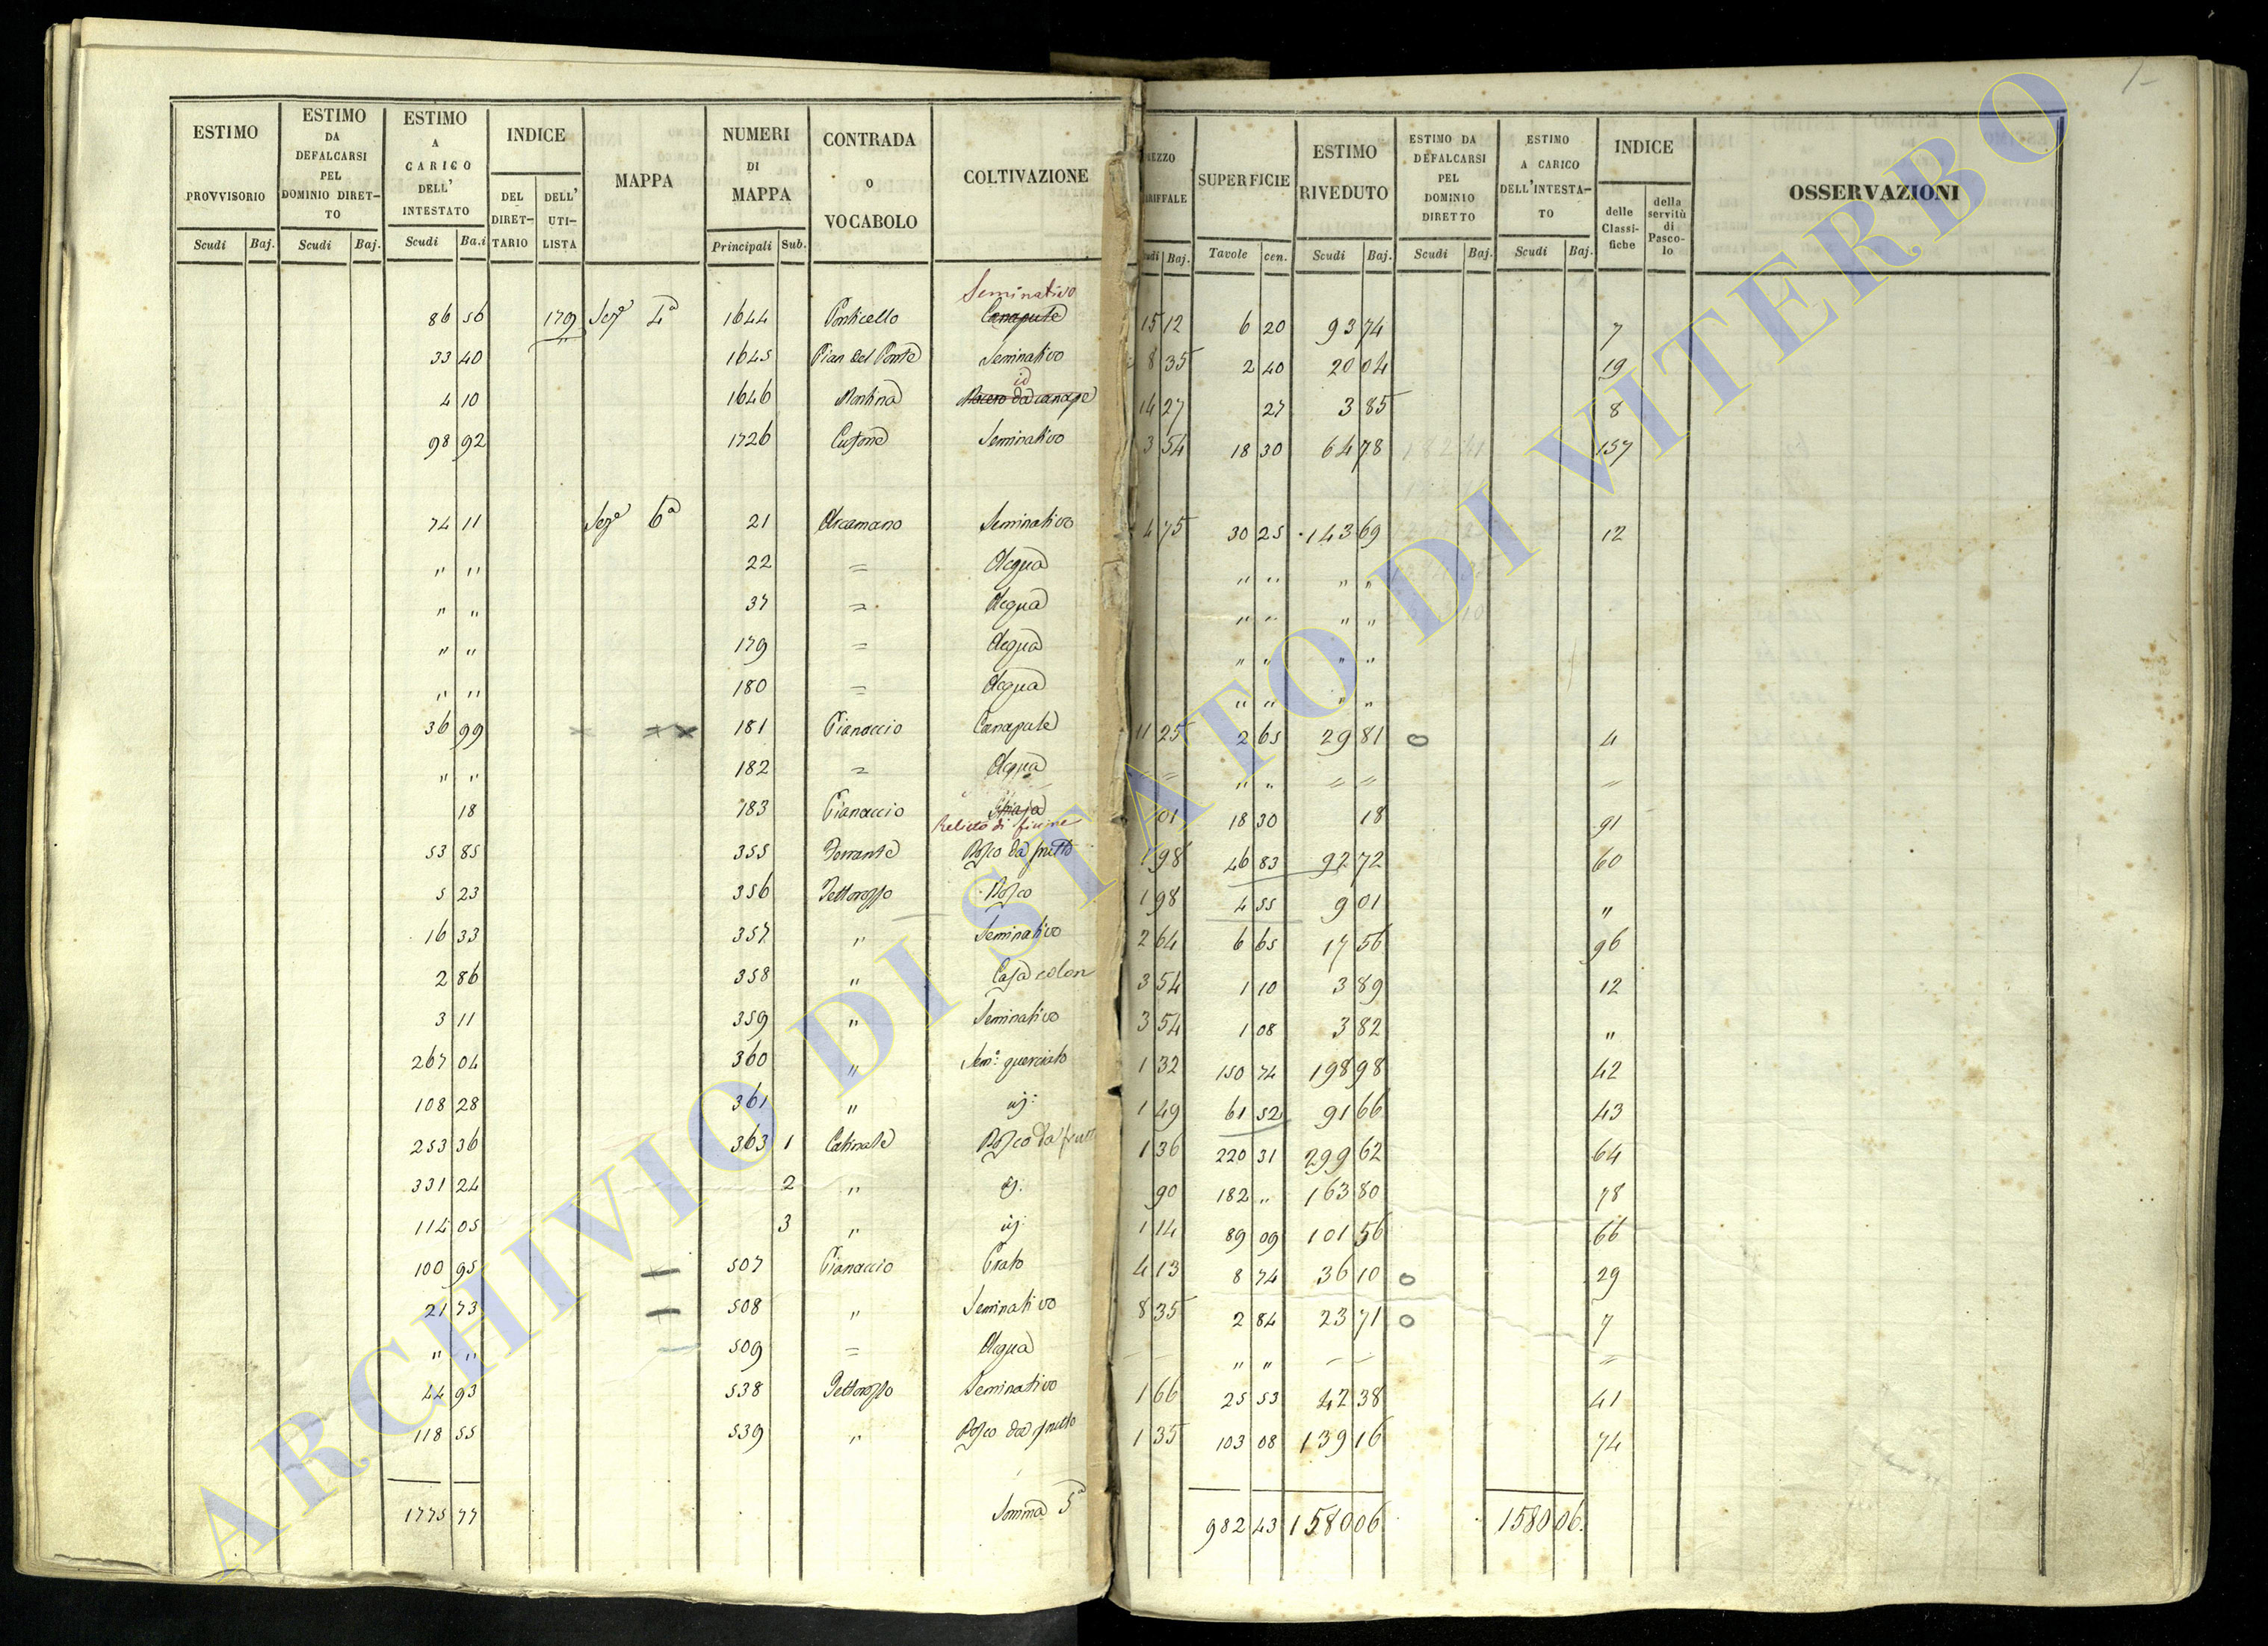 1-
ESTIMO PROVVISORIO | ESTIMO DA DEFALCARSI PEL DOMINIO DIRETTO | ESTIMO A CARICO DELL' INTESTATO | INDICE | MAPPA | NUMERI DI MAPPA | CONTRADA O VOCABOLO | COLTIVAZIONE | EZZO RIFFALE | SUPERFICIE | ESTIMO RIVEDUTO | ESTIMO DA DEFALCARSI PEL DOMINIO DIRETTO | ESTIMO A CARICO DELL'INTESTATO | INDICE | OSSERVAZIONI
DEL DIRETTARIO | DELL' UTILISTA | delle Classifiche | della servitù di Pascolo
Scudi | Baj. | Scudi | Baj. | Scudi | Ba.i | Principali | Sub. | udi | Baj. | Tavole | cen. | Scudi | Baj. | Scudi | Baj. | Scudi | Baj.
Seminativo
86 56 | 179 | Sez.e 4a | 1644 | Ponticello | Canapule | 15 12 | 6 20 | 93 74 | 7
33 40 | 1645 | Pian del Ponte | Seminativo | 8 35 | 2 40 | 20 04 | 19
id
4 10 | 1646 | Mentina | Macero da canape | 14 27 | 27 | 3 85 | 8
98 92 | 1726 | Seminativo | 3 54 | 18 30 | 64 78 | 157
74 11 | Sez.e 6a | 21 | Arcamano | Seminativo | 4 75 | 30 25 | 143 69 | 12
" " | 22 | = | Acqua | " " | " "
" " | 37 | = | Acqua | " " | " "
" " | 179 | = | Acqua | " " | " "
" " | 180 | = | Acqua | " " | " "
36 99 | 181 | Pianaccio | Canapule | 11 25 | 2 65 | 29 81 | o | 4
" " | 182 | = | Acqua | = | " " | = = | =
18 | 183 | Pianaccio | Ghiaja | 01 | 18 30 | 18 | 91
Relitto di fiume
53 85 | 355 | Ferrante | Bosco da frutto | 1 98 | 46 83 | 92 72 | 60
5 23 | 356 | Pettorosso | Bosco | 1 98 | 4 55 | 9 01 | "
16 33 | 357 | " | Seminativo | 2 64 | 6 65 | 17 56 | 96
2 86 | 358 | " | Casa colon | 3 54 | 1 10 | 3 89 | 12
3 11 | 359 | " | Seminativo | 3 54 | 1 08 | 3 82 | "
267 04 | 360 | " | Sem.o querciato | 1 32 | 150 74 | 198 98 | 42
108 28 | 361 | " | id: | 1 49 | 61 52 | 91 66 | 43
253 36 | 363 1 | Catinale | Bosco da frutt | 1 36 | 220 31 | 299 62 | 64
331 24 | 2 | " | id: | 90 | 182 " | 163 80 | 78
114 05 | 3 | " | id: | 1 14 | 89 09 | 101 56 | 66
100 95 | 507 | Pianaccio | Prato | 4 13 | 8 74 | 36 10 | o | 29
21 73 | 508 | " | Seminativo | 8 35 | 2 84 | 23 71 | o | 7
" " | 509 | = | Acqua | " " | =
44 93 | 538 | Pettorosso | Seminativo | 1 66 | 25 53 | 42 38 | 41
118 55 | 539 | " | Bosco da frutto | 1 35 | 103 08 | 139 16 | 74
1775 77 | Somma 5a | 982 43 | 1580 06 | 1580 06
ARCHIVIO DI STATO DI VITERBO